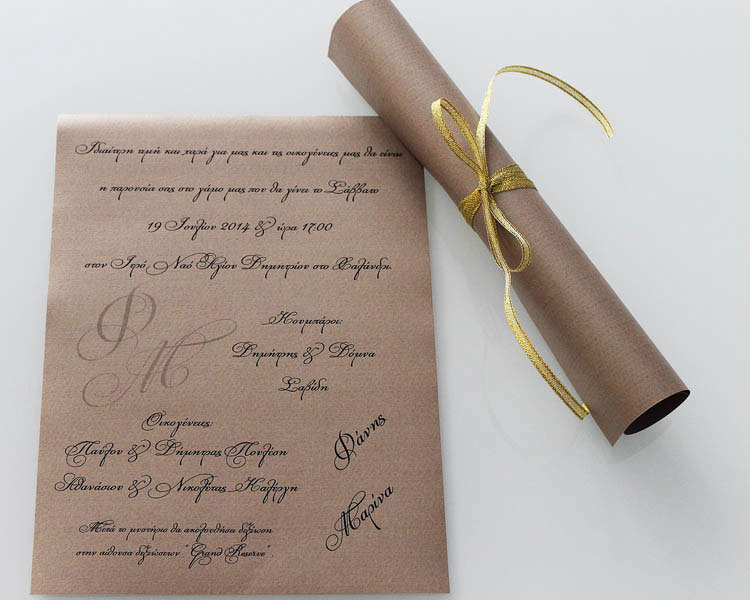 Ιδιαίτερη τιμή και χαρά για μας και τις οικογένειες μας θα είναι
η παρουσία σας στο γάμο μας που θα γίνει το Σάββατο
19 Ιουλίου 2014 & ώρα 17.00
στον Ιερό Ναό Αγίου Δημητρίου στο Χαλάνδρι.
Φ
Μ
Κουμπάροι:
Δημήτρης & Δόμνα
Σαβίδη
Οικογένειες:
Παύλου & Δήμητρας Πουλέση
Αθανάσιου & Νικολέτας Καλέργη
Φάνης
Μαρίνα
Μετά το μυστήριο θα ακολουθήσει δεξίωση
στην αίθουσα δεξιώσεων "Grand Reserve".